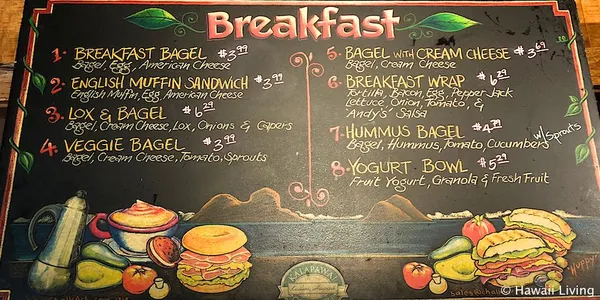 Breakfast
1. BREAKFAST BAGEL $3.99
Bagel, Egg, American Cheese
2. ENGLISH MUFFIN SANDWICH $3.99
English Muffin, Egg, American Cheese
3. LOX & BAGEL $6.29
Bagel, Cream Cheese, Lox, Onions & Capers
4. VEGGIE BAGEL $3.99
Bagel, Cream Cheese, Tomato, Sprouts
5. BAGEL WITH CREAM CHEESE $3.69
Bagel, Cream Cheese
6. BREAKFAST WRAP $6.29
Tortilla, Bacon, Egg, Pepper Jack
Lettuce, Onion, Tomato, &
Andy's Salsa
7. HUMMUS BAGEL $4.79
Bagel, Hummus, Tomato, Cucumbers w/Sprouts
8. YOGURT BOWL $5.29
Fruit Yogurt, Granola & Fresh Fruit
KALAPAWAI
© Hawaii Living